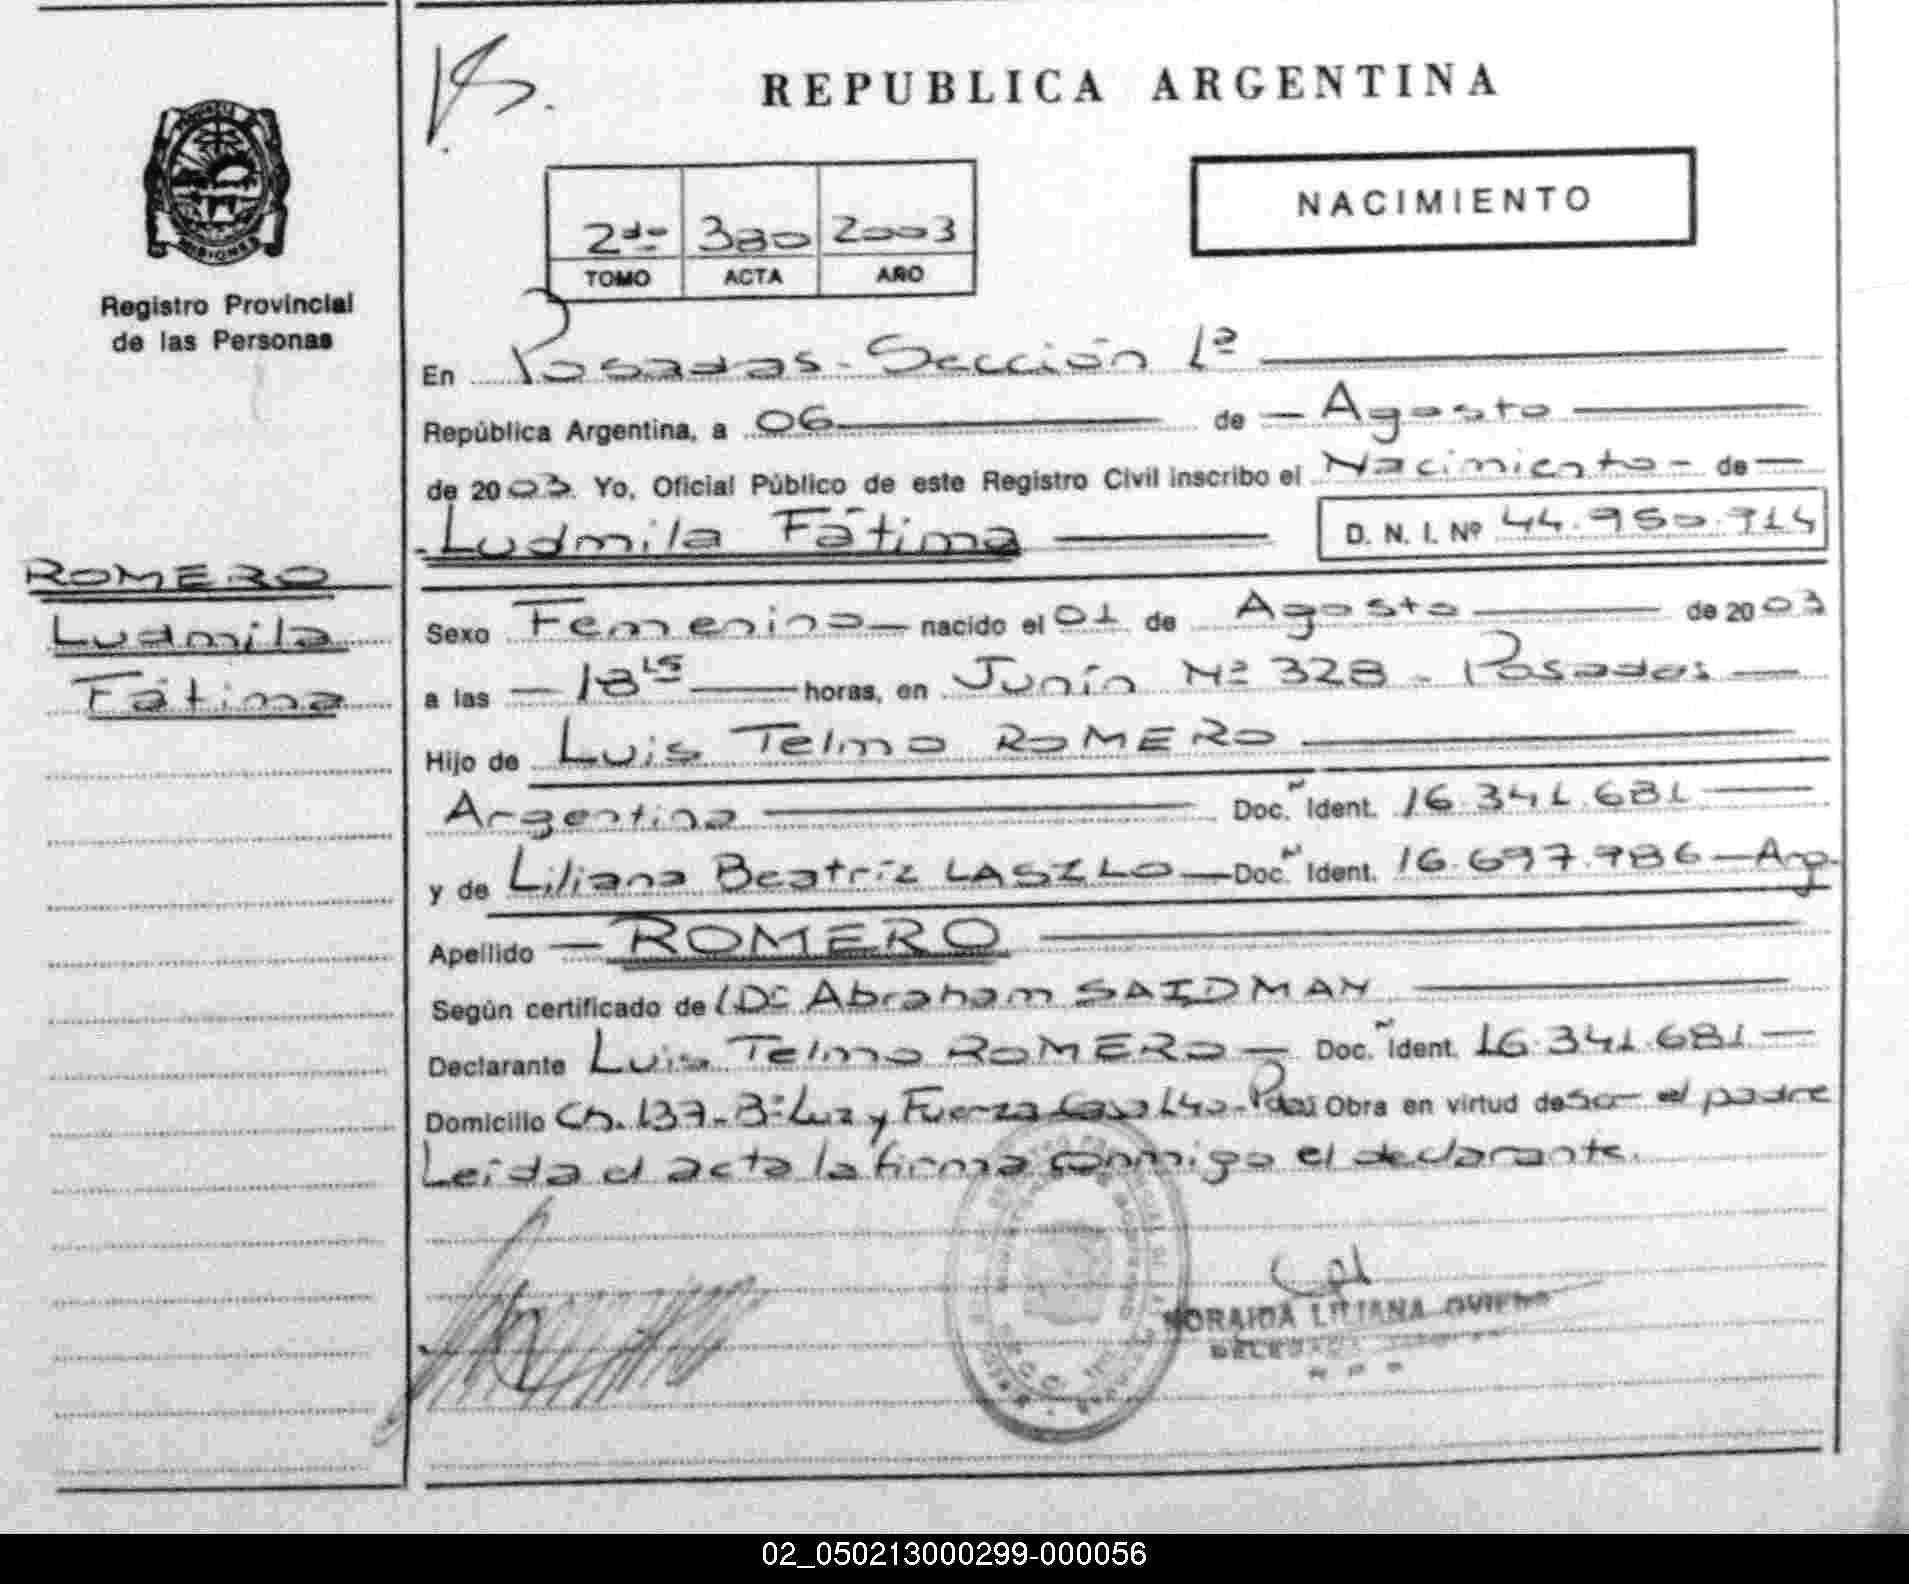 REPUBLICA ARGENTINA
NACIMIENTO
2do 380 2003
TOMO ACTA AÑO
MISIONES
Registro Provincial
de las Personas
ROMERO
Ludmila
Fátima
En Posadas - Sección 1ª
República Argentina, a 06 de Agosto
de 2003 Yo, Oficial Público de este Registro Civil inscribo el Nacimiento - de
Ludmila Fátima D. N. I. Nº 44.950.714
Sexo Femenino nacido el 01 de Agosto de 2003
a las 18 15 horas, en Junín Nº 328 - Posadas
Hijo de Luis Telmo ROMERO
Argentina Doc. Ident. 16.341.681
y de Liliana Beatríz LASZLO Doc. Ident. 16.697.986 - Arg.
Apellido ROMERO
Según certificado de Abraham SAIDMAN
Declarante Luis Telmo ROMERO Doc. Ident. 16.341.681
Domicilio Ch. 137 - Bº Luz y Fuerza Casa 140 - Pdas Obra en virtud de ser el padre
Leída el acta la firma conmigo el declarante.
NORAIDA LILIANA OVIEDO
DELEGADA
02_050213000299-000056